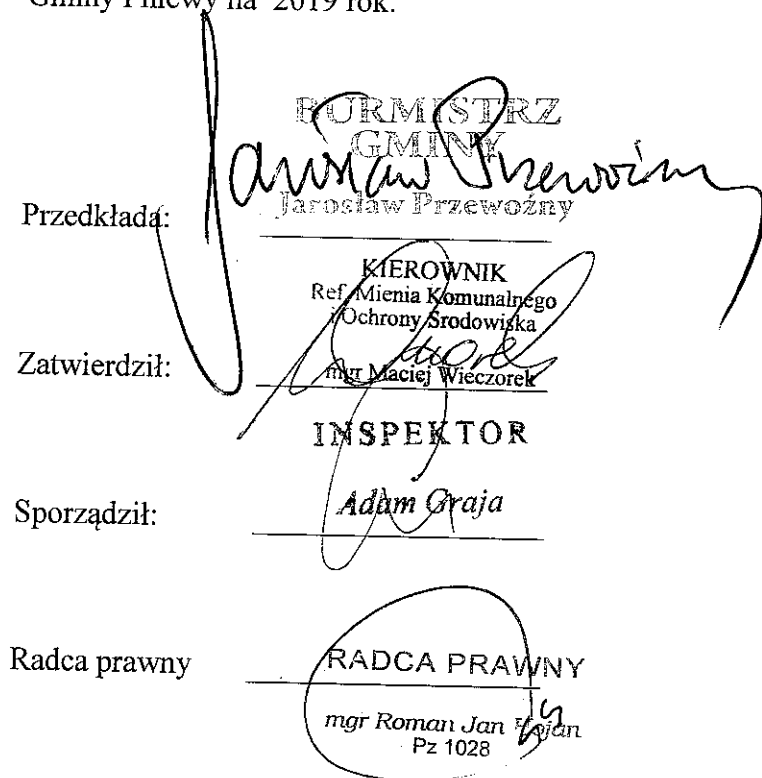 Gminy Pniewy na 2019 rok.
BURMISTRZ
GMINY
Jarosław Przewoźny
Przedkłada:
Jarosław Przewoźny
KIEROWNIK
Ref. Mienia Komunalnego
i Ochrony Środowiska
Zatwierdził:
mgr Maciej Wieczorek
INSPEKTOR
Sporządził:
Adam Graja
Radca prawny
RADCA PRAWNY
mgr Roman Jan
Pz 1028